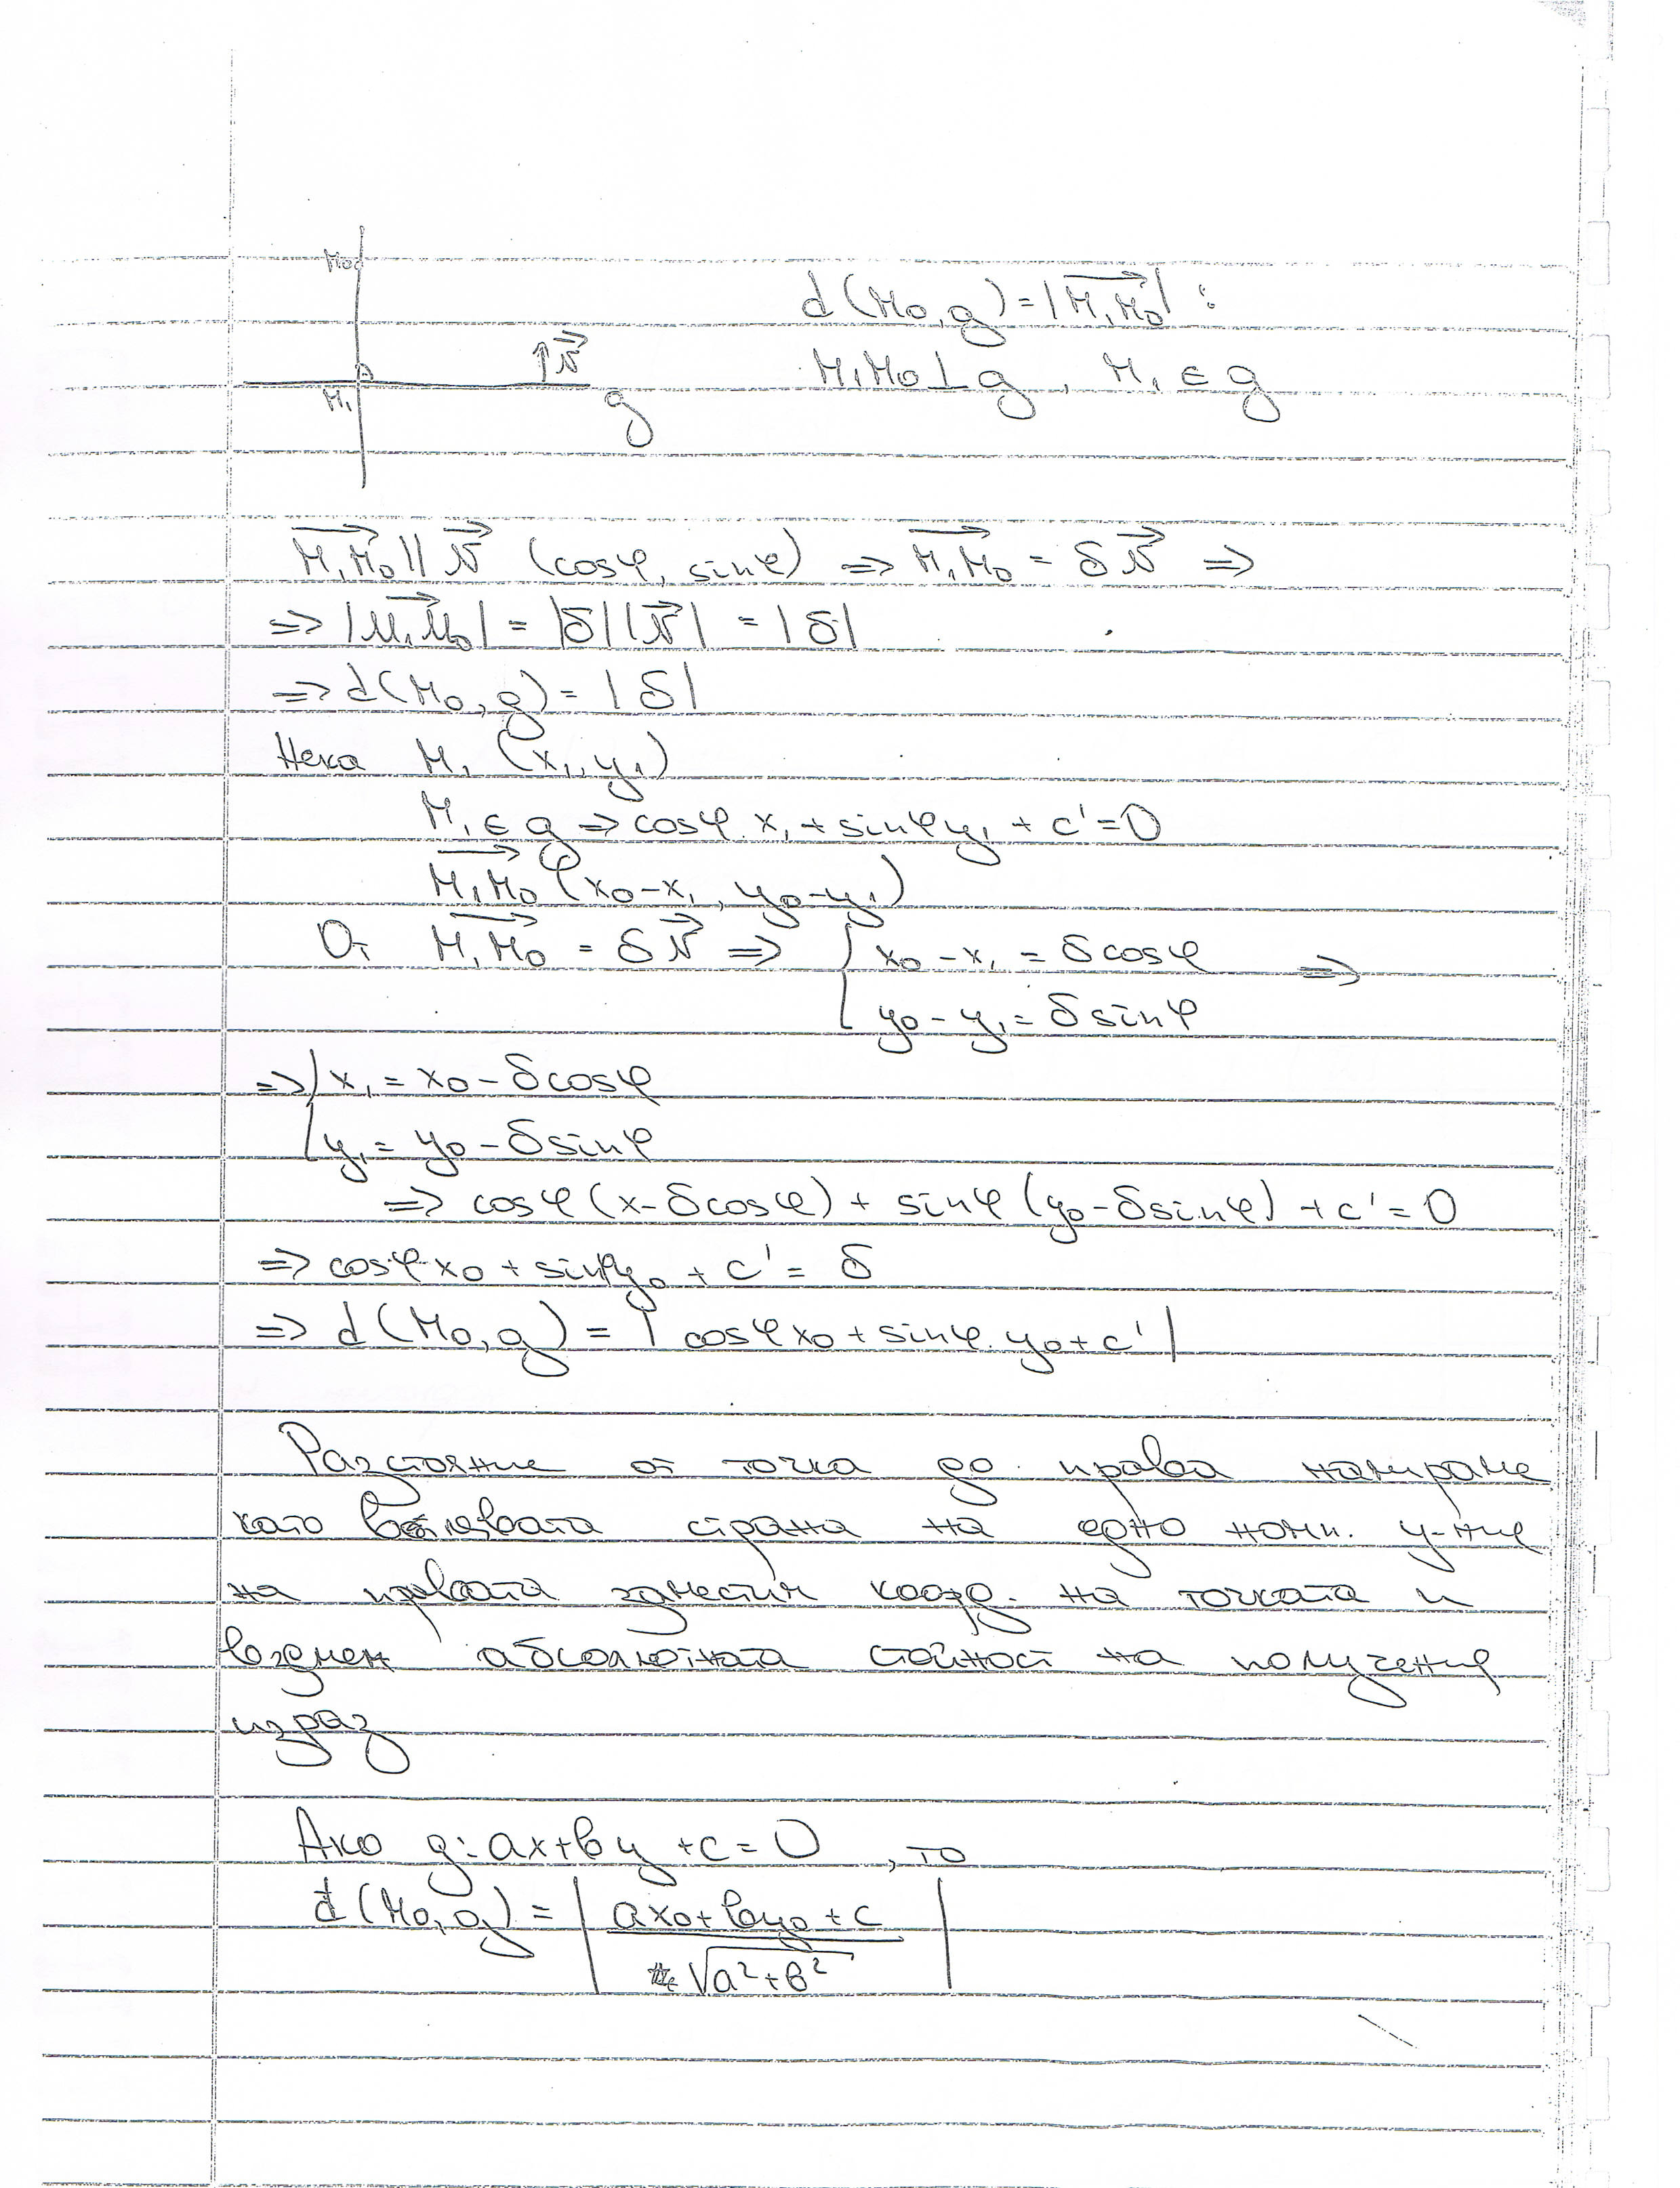 M₀
d(M₀,g)=|M₁M₀→| :
↑N→
M₁M₀⊥g, M₁∈g
M₁
g
M₁M₀→ || N→ (cosφ, sinφ) ⇒ M₁M₀→ = δN→ ⇒
⇒ |M₁M₀→| = |δ||N→| = |δ|
⇒ d(M₀,g) = |δ|
Нека M₁ (x₁,y₁)
M₁∈g ⇒ cosφ.x₁+sinφy₁+c'=0
M₁M₀→ (x₀-x₁, y₀-y₁)
От M₁M₀→ = δN→ ⇒ { x₀-x₁ = δcosφ ⇒
y₀-y₁ = δsinφ
⇒ { x₁ = x₀-δcosφ
y₁ = y₀-δsinφ
⇒ cosφ(x-δcosφ) + sinφ(y₀-δsinφ) + c' = 0
⇒ cosφx₀ + sinφy₀ + c' = δ
⇒ d(M₀,g) = |cosφx₀+sinφ.y₀+c'|
Разстояние от точка до права намираме
като в лявата страна на едно норм. у-ние
на правата заместим коорд. на точката и
вземем абсолютната стойност на получения
израз
Ако g: ax+by+c=0, то
d(M₀,g) = | ax₀+by₀+c
√a²+b² |